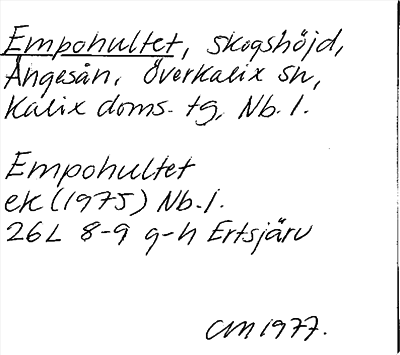 Empohultet, skogshöjd,
Ängesån, Överkalix sn,
Kalix doms. tg, Nb. l.
Empohultet
ek (1975) Nb. l.
26L 8-9 g-h Ertsjärv
CM 1977.